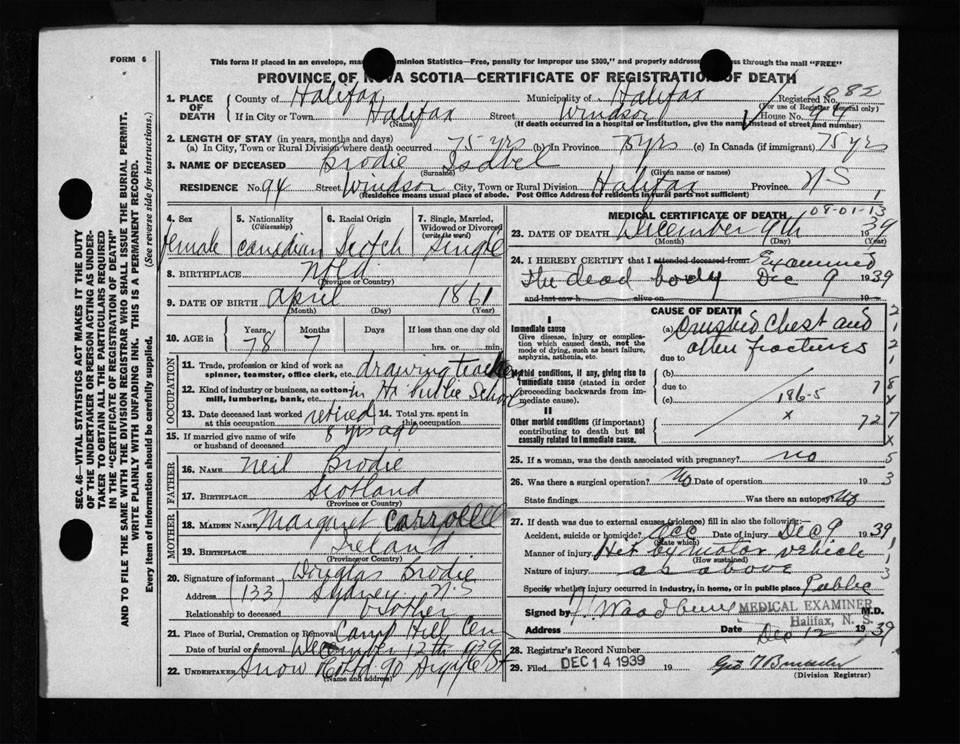 FORM 6
This form if placed in an envelope, ma Dominion Statistics—Free, penalty for improper use $300," and properly addresse ss through the mail "FREE"
PROVINCE OF NOVA SCOTIA—CERTIFICATE OF REGISTRATION OF DEATH
1. PLACE OF DEATH
County of Halifax Municipality of Halifax Registered No. 1882
(For use of Registrar General only)
If in City or Town. Halifax Street Windsor House No. 94
(Name) (If death occurred in a hospital or institution, give the name instead of street and number)
2. LENGTH OF STAY (in years, months and days)
(a) In City, Town or Rural Division where death occurred 75 yrs (b) In Province 75 yrs (c) In Canada (if immigrant) 75 yrs
3. NAME OF DECEASED Brodie Isabel
(Surname) (Given name or names)
RESIDENCE No. 94 Street Windsor City, Town or Rural Division Halifax Province N S
(Residence means usual place of abode. Post Office Address for residents in rural parts not sufficient)
4. Sex female
5. Nationality (Citizenship) Canadian
6. Racial Origin Scotch
7. Single, Married, Widowed or Divorced (write the word) Single
8. BIRTHPLACE Nfld
(Province or Country)
9. DATE OF BIRTH April 1861
(Month) (Day) (Year)
10. AGE in Years Months Days If less than one day old
78 7 hrs. or min.
OCCUPATION
11. Trade, profession or kind of work as spinner, teamster, office clerk, etc. drawing teacher
12. Kind of industry or business, as cotton-mill, lumbering, bank, etc. in Hx Public Schools
13. Date deceased last worked at this occupation retired 8 yrs ago
14. Total yrs. spent in this occupation
15. If married give name of wife or husband of deceased
FATHER
16. NAME Neil Brodie
17. BIRTHPLACE Scotland
MOTHER
18. MAIDEN NAME Margaret Carroll
19. BIRTHPLACE Ireland
(Province or Country)
20. Signature of informant Douglas Brodie
Address (133) Sydney N.S
Relationship to deceased brother
21. Place of Burial, Cremation or Removal Camp Hill Cem
Date of burial or removal December 12th 1939
22. UNDERTAKER Snow & Co Ltd 90 Argyle St
(Name and address)
MEDICAL CERTIFICATE OF DEATH 09-01-13
23. DATE OF DEATH December 9th 1939
(Month) (Day) (Year)
24. I HEREBY CERTIFY that I attended deceased from Examined
the dead body Dec 9 1939
and last saw h alive on
CAUSE OF DEATH
I
Immediate cause
Give disease, injury or complication which caused death, not the mode of dying, such as heart failure, asphyxia, asthenia, etc.
(a) Crushed Chest and
other fractures
due to
Morbid conditions, if any, giving rise to immediate cause (stated in order proceeding backwards from immediate cause).
(b)
due to
(c) 186-5
x
II
Other morbid conditions (if important) contributing to death but not causally related to immediate cause.
25. If a woman, was the death associated with pregnancy? no
26. Was there a surgical operation? No Date of operation 19
State findings Was there an autopsy? No
27. If death was due to external causes (violence) fill in also the following:—
Accident, suicide or homicide? acc Date of injury Dec 9 1939
(State which)
Manner of injury Hit by motor vehicle
(How sustained)
Nature of injury as above
Specify whether injury occurred in industry, in home, or in public place Public
Signed by Woodbury MEDICAL EXAMINER M.D.
Halifax, N. S.
Address Date Dec 12 1939
28. Registrar's Record Number
29. Filed DEC 14 1939
(Division Registrar)
SEC. 46—VITAL STATISTICS ACT MAKES IT THE DUTY
OF THE UNDERTAKER OR PERSON ACTING AS UNDER-
TAKER TO OBTAIN ALL THE PARTICULARS REQUIRED
IN THE "CERTIFICATE OF REGISTRATION OF DEATH"
AND TO FILE THE SAME WITH THE DIVISION REGISTRAR WHO SHALL ISSUE THE BURIAL PERMIT.
WRITE PLAINLY WITH UNFADING INK. THIS IS A PERMANENT RECORD.
Every item of information should be carefully supplied. (See reverse side for instructions.)